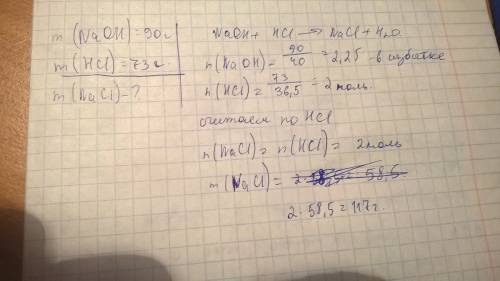 m(NaOH)=90г
m(HCl)=73г
m(NaCl)-?
NaOH+ HCl → NaCl+H₂O
n(NaOH)= 90/40 =2,25 - в избытке
n(HCl)= 73/36,5 = 2 моль
считаем по HCl
n(NaCl)= n(HCl)= 2моль
m(NaCl)=
2·58,5=117г.